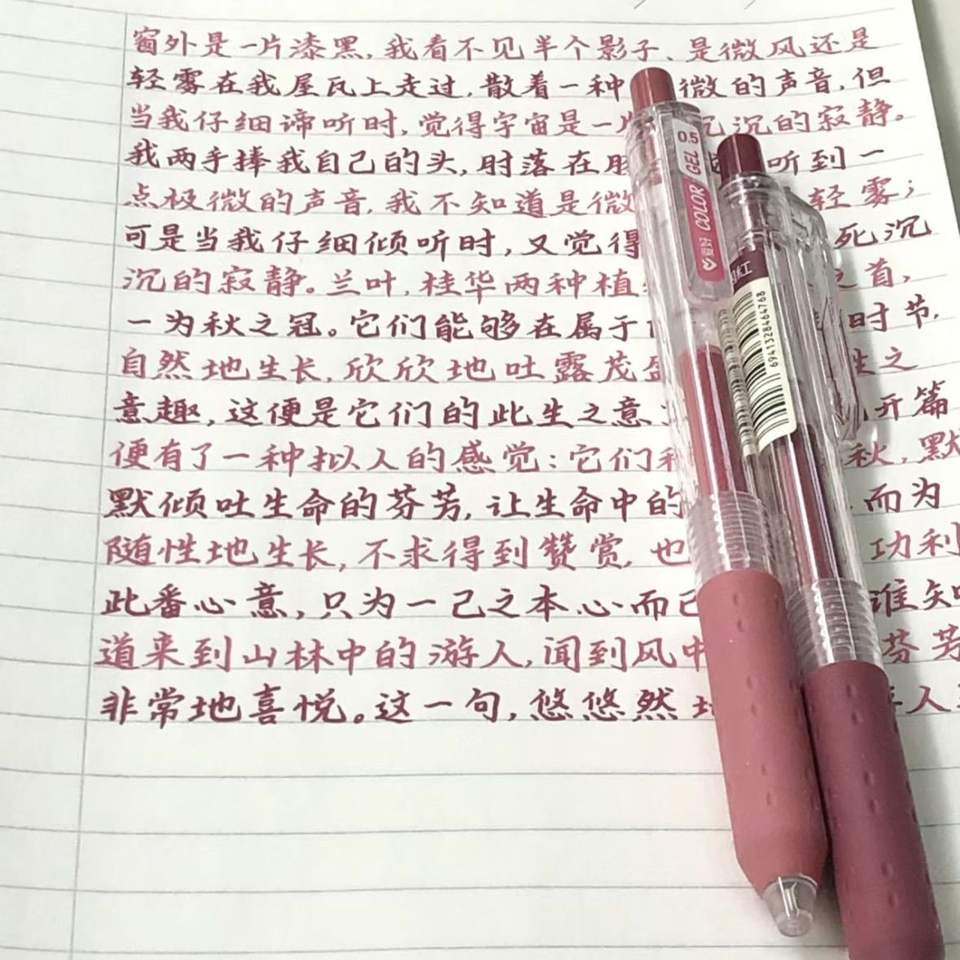 窗外是一片漆黑,我看不见半个影子、是微风还是
轻雾在我屋瓦上走过,散着一种 微的声音,但
当我仔细谛听时,觉得宇宙是一 沉的寂静。
我两手捧我自己的头,时落在 听到一
点极微的声音,我不知道是微 轻雾;
可是当我仔细倾听时,又觉得 死沉
沉的寂静。兰叶,桂华两种植 之首,
一为秋之冠。它们能够在属于 时节.
自然地生长,欣欣地吐露茂 之
意趣,这便是它们的此生之意 开篇
便有了一种拟人的感觉:它们 秋,默
默倾吐生命的芬芳,让生命中的 而为
随性地生长,不求得到赞赏,也 功利
此番心意,只为一己之本心而已 谁知
道来到山林中的游人,闻到风中 芬芳
非常地喜悦。这一句,悠悠然 人
0.5
GEL
COLOR
爱好
红
6941328464768